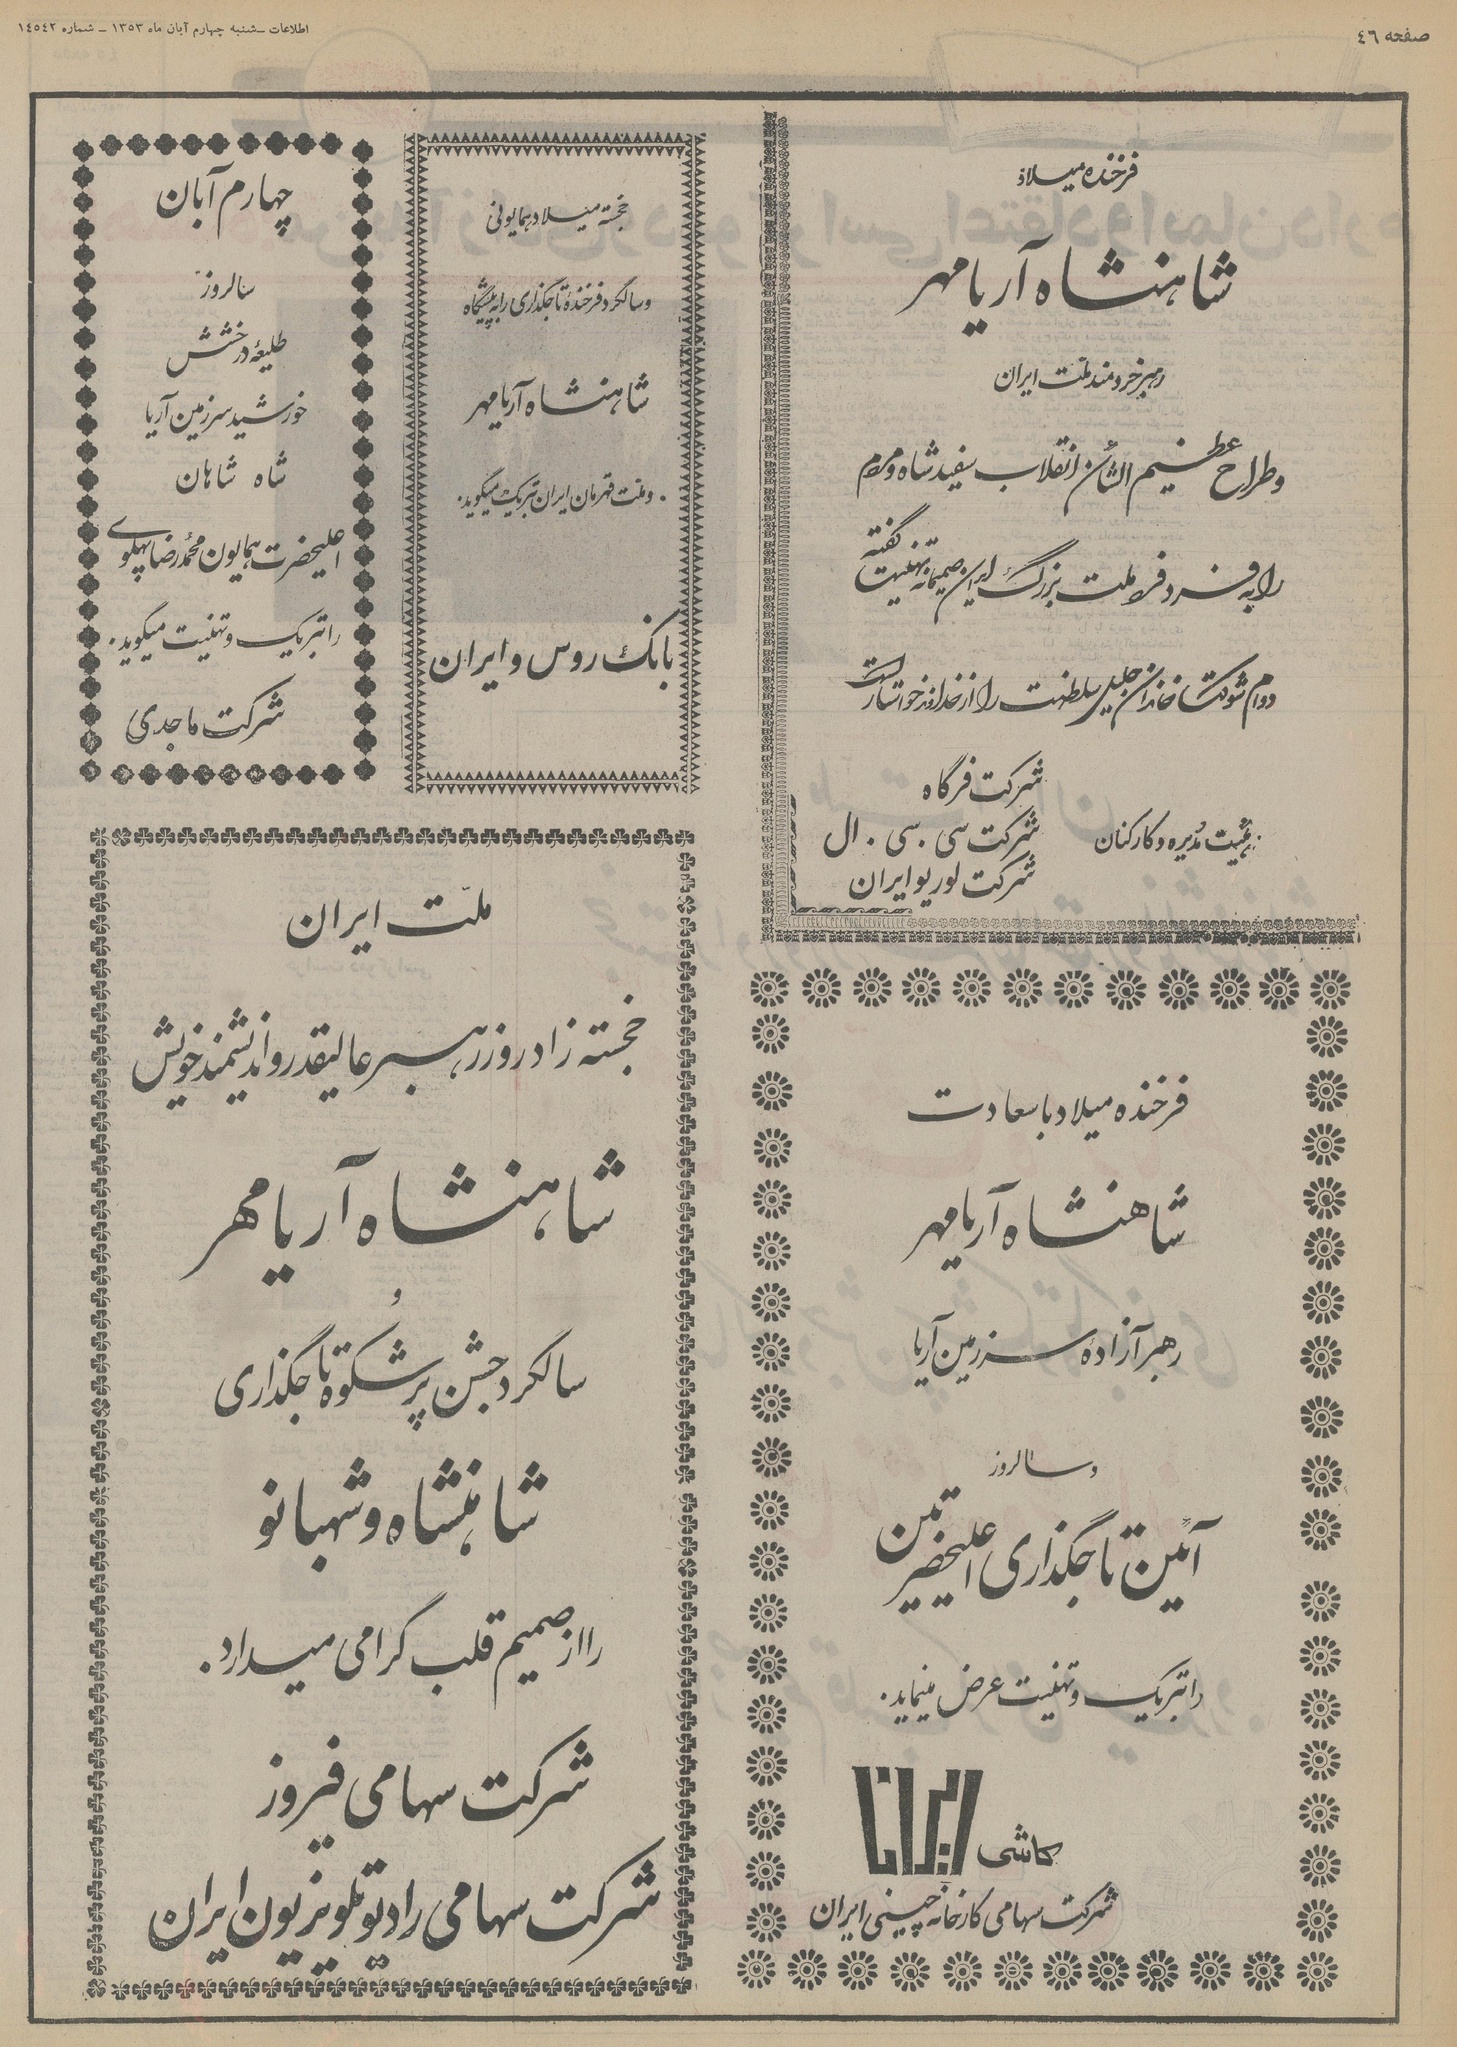 صفحه ٤٦
اطلاعات ــ شنبه چهارم آبان ماه ۱۳۵۳ ــ شماره ١٤٥٤٢
فرخنده میلاد
شاهنشاه آریامهر
رهبر خردمند ملت ایران
و طراح عظیم الشأن انقلاب سفید شاه و مردم
را به فرد فرد ملت بزرگ ایران صمیمانه تهنیت گفته
دوام شوکت خاندان جلیل سلطنت را از خداوند خواستار است
هیئت مدیره و کارکنان
شرکت فرگاه
شرکت سی . سی . ال
شرکت لوریو ایران
خجسته میلاد همایونی
و سالگرد فرخنده تاجگذاری را به پیشگاه
شاهنشاه آریامهر
و ملت قهرمان ایران تبریک میگوید .
بانک روس و ایران
چهارم آبان
سالروز
طلیعه درخشش
خورشید سرزمین آریا
شاه شاهان
اعلیحضرت همایون محمدرضا پهلوی
را تبریک و تهنیت میگوید .
شرکت ماجدی
فرخنده میلاد با سعادت
شاهنشاه آریامهر
رهبر آزاده سرزمین آریا
و سالروز
آئین تاجگذاری اعلیحضرتین
را تبریک و تهنیت عرض مینماید .
کاشی ایرانا
شرکت سهامی کارخانه چینی ایران
ملت ایران
خجسته زادروز رهبر عالیقدر و اندیشمند خویش
شاهنشاه آریامهر
و
سالگرد جشن پرشکوه تاجگذاری
شاهنشاه و شهبانو
را از صمیم قلب گرامی میدارد .
شرکت سهامی فیروز
شرکت سهامی رادیو تلویزیون ایران